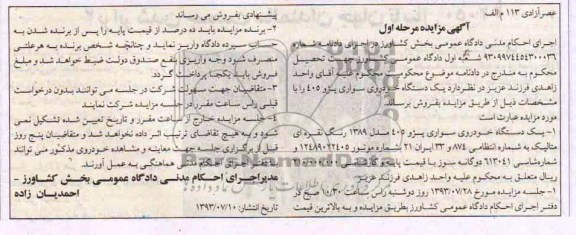 عصرآزادی ۱۱۳ م الف
آگهی مزایده مرحله اول
اجرای احکام مدنی دادگاه عمومی بخش کشاورز در اجرای دادنامه شماره
۹۳۰۹۹۷۴۴۵۴۳۰۰۰۳۶ شعبه اول دادگاه عمومی کشاورز جهت تحصیل
محکوم به مندرج در دادنامه موضوع محکومیت محکوم علیه آقای واحد
زاهدی فرزند عزیز در نظر دارد یک دستگاه خودروی سواری پژو ۴۰۵ را با
مشخصات ذیل از طریق مزایده بفروش برساند.
مورد مزایده عبارت است
۱- یک دستگاه خودروی سواری پژو ۴۰۵ مدل ۱۳۸۹ رنگ نقره ای
متالیک به شماره انتظامی ۸۷۴ و ۳۳ ایران ۲۱ شماره موتور ۱۲۴۸۹۰۲۲۴۰۵ و
شماره شاسی ۶۱۳۰۴۱ دوگانه سوز با قیمت پایه
ریال متعلق به محکوم علیه واحد زاهدی فرزند عزیز
۱- جلسه مزایده مورخ ۱۳۹۳/۰۷/۲۸ روز دوشنبه راس ساعت ۱۰:۳۰ صبح در
دفتر اجرای احکام دادگاه عمومی کشاورز بطریق مزایده و به بالاترین قیمت
پیشنهادی بفروش می رساند
۲- برنده مزایده باید ده درصد از قیمت پایه را پس از برنده شدن به
حساب سپرده دادگاه واریز نماید و چنانچه شخص برنده به هر علتی
منصرف شود وجه واریزی بنفع صندوق دولت ضبط خواهد شد و مبلغ
فروش باید یکجا پرداخت گردد.
۳- متقاضیان جهت سهولت شرکت در جلسه می توانند بدون درخواست
قبلی راس ساعت مقرر در جلسه مزایده شرکت نمایند
۴- جلسه مزایده خارج از ساعت مقرر و تاریخ تعیین شده تشکیل نمی
شود و به هیچ تقاضای ترتیب اثر داده نخواهد شد و متقاضیان پنج روز
قبل از برگزاری جلسه جهت معاینه و مشاهده خودروی مذکور می توانند
هماهنگی به عمل آورند.
مدیر اجرای احکام مدنی دادگاه عمومی بخش کشاورز -
احمدیان زاده
تاریخ انتشار: ۱۳۹۳/۰۷/۱۰